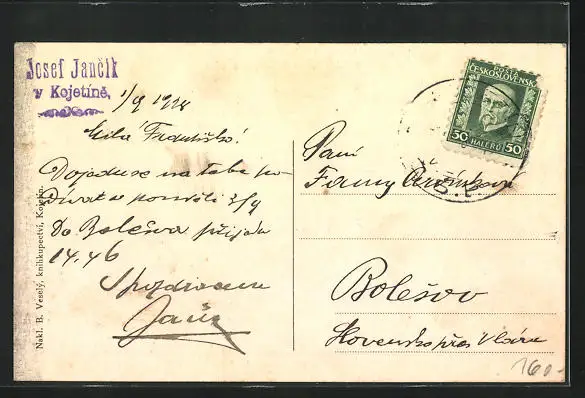 Josef Jančík
v Kojetíně,
1/9 1928
Milá Františko!
Dojedu se na tebe po
dívat v pondělí 3/9
do Bolešova přijedu
14.46
S pozdravem
Nakl. B. Veselý, knihkupectví, Kojetín.
POSTA
ČESKOSLOVENSKÁ
50 HALÉŘŮ 50
Paní
Fanny
Bolešov
Slovensko přes Vláru
160.-